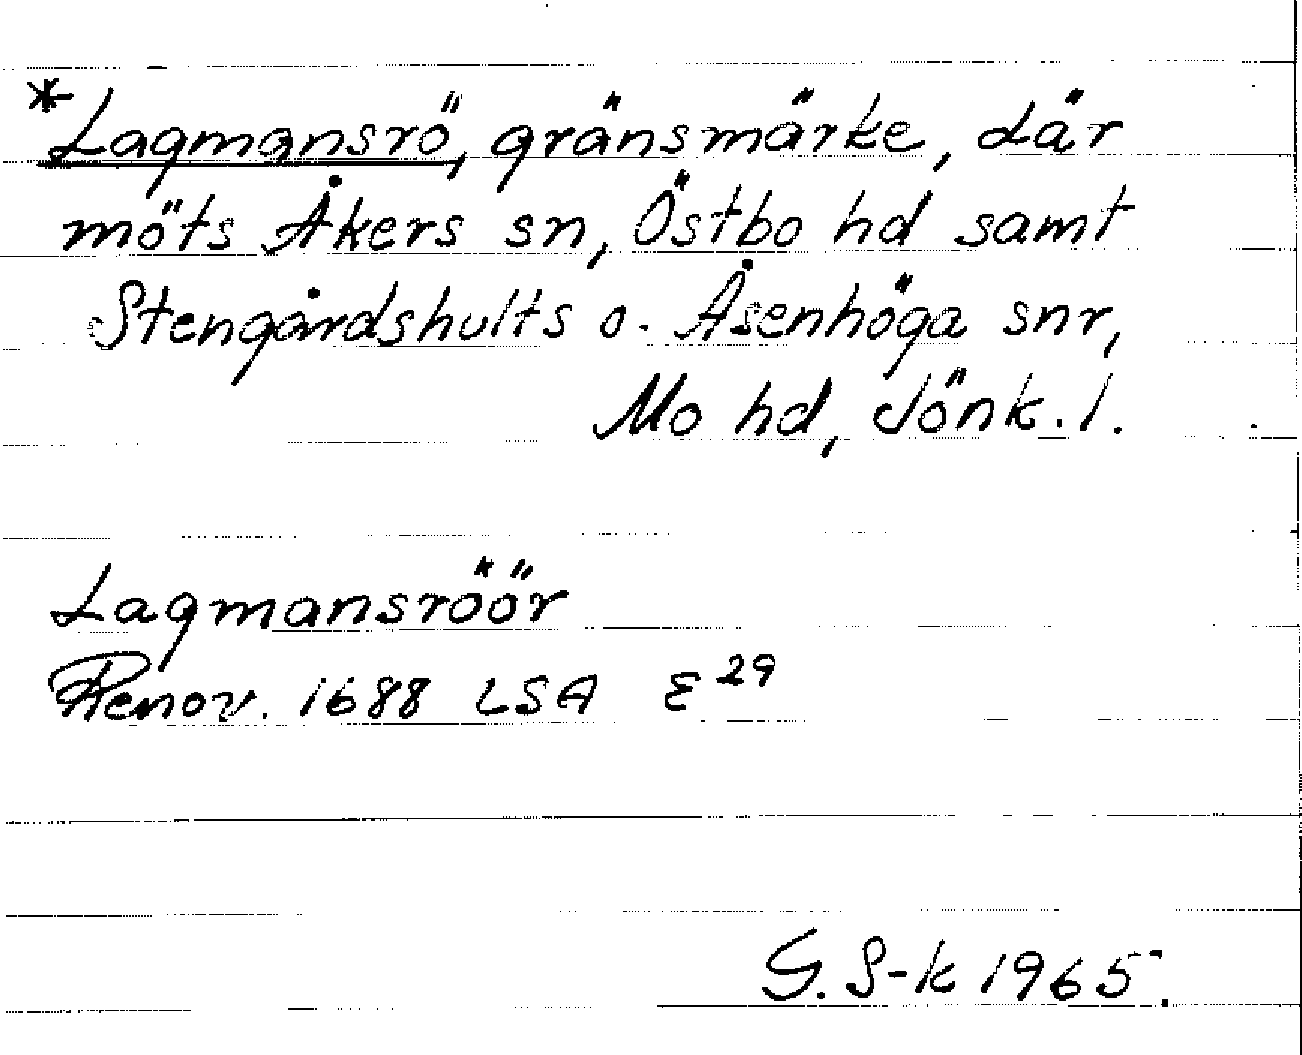 *Lagmansrö, gränsmärke, där
möts Åkers sn, Östbo hd samt
Stengårdshults o. Åsenhöga snr,
Mo hd, Jönk. l.
Lagmansröör
Renov. 1688 LSA E 29
G. S-k 1965.